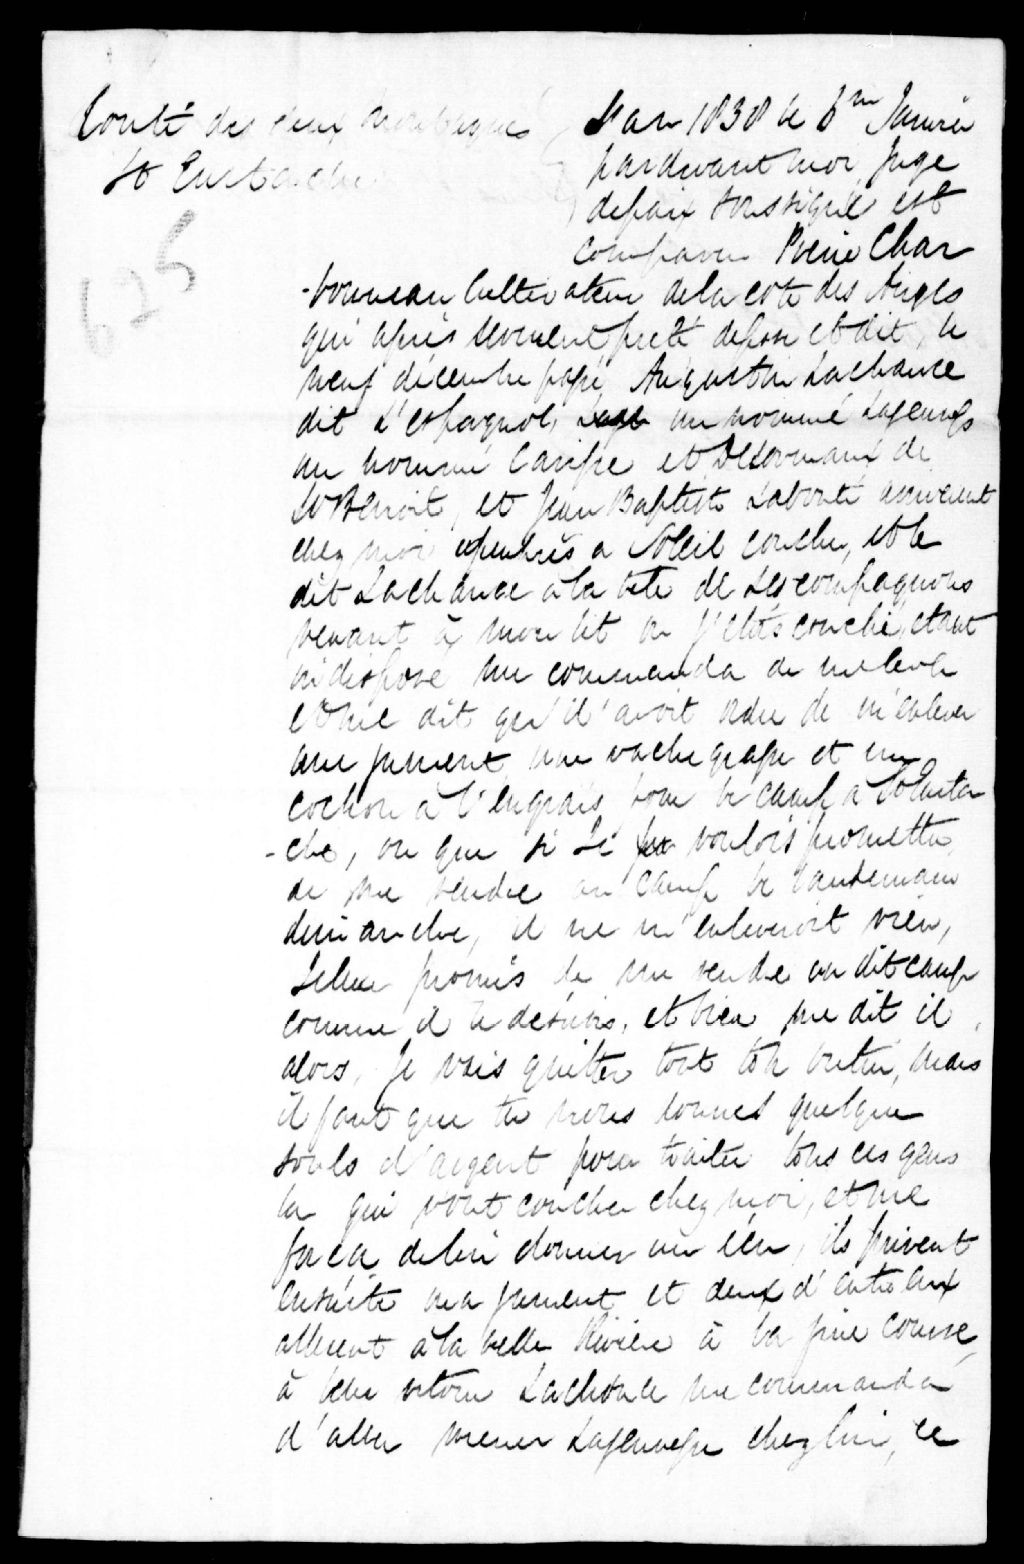 Conté des deux Montagnes
St Eustache
625
L'an 1838 le 6me Janvier
pardevant moi Juge
depaix soussigné est
comparu Pierre Char
-bonneau Cultivateur dela cote des Anges
qui après serment preté depose et dit, le
neuf décembre passé Augustin Lachance
dit L'espagnol, un nommé
un nommé et Desormaux de
St Benoit, et Jean Baptiste Labonté arrivèrent
chez moi apeuprès a Soleil couché, et le
dit Lachance a la tete de ses compagnons
venant à mon lit ou j'etois couché, etant
indisposé me commanda de me lever
et me dit qu'il avoit ordre de m'enlever
une jument, une vache grasse et un
cochon à l'engrais pour le camp a St Eusta
-che, ou que si je voulois promettre
de me rendre au camp le lendemain
dimanche, il ne m'enleveroit rien,
Je lui promis de me rendre au dit camp
comme il le desirois, et bien me dit il
alors, Je vais quitter tout ton butin, mais
il faut que tu nous donnes quelque
souls d'argent pour traiter tous ces gens
la qui vont coucher chez moi, et me
força de lui donner un écu, ils prirent
ensuite ma jument et deux d'entre eux
allerent a la belle Rivière à la fine course,
à leur retour Lachance me commanda
d'aller mener chez lui, ce